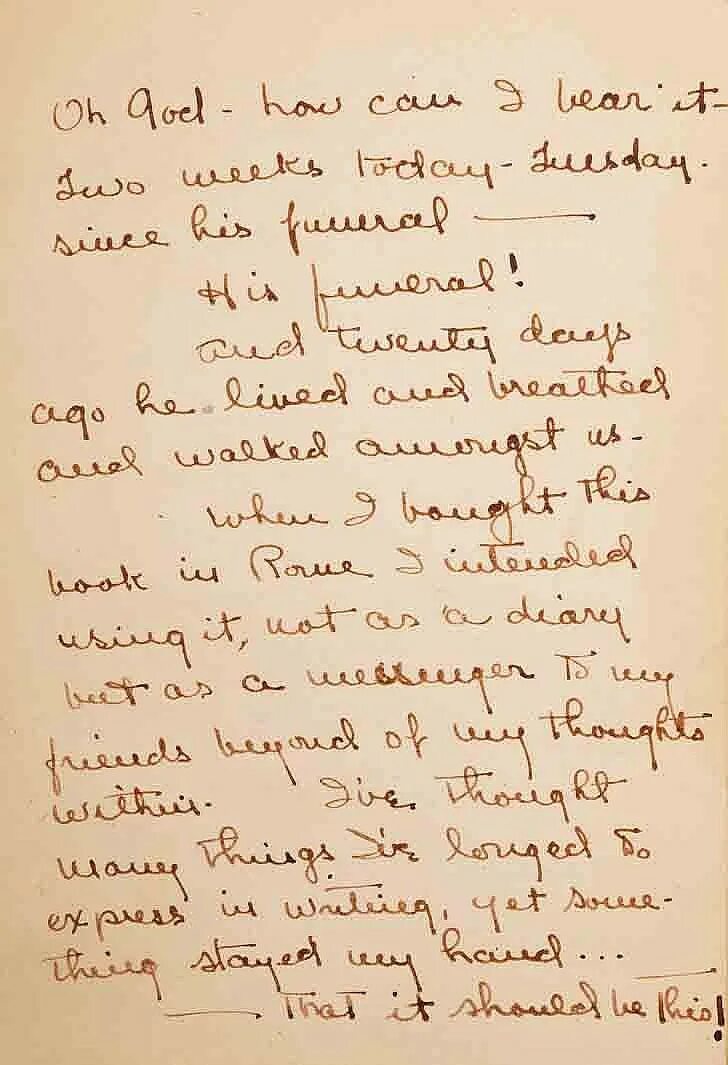 Oh God - how can I bear it -
Two weeks today - Tuesday.
since his funeral —
His funeral!
and twenty days
ago he lived and breathed
and walked amongst us -
When I bought this
book in Rome I intended
using it, not as a diary
but as a messenger to my
friends beyond of my thoughts
within. I've thought
many things I've longed to
express in writing, yet some-
thing stayed my hand... —
— That it should be this!